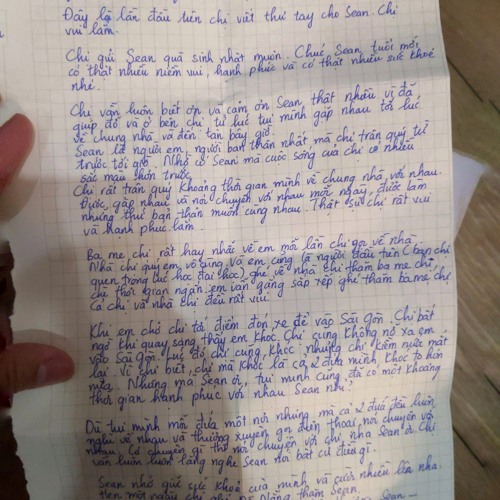 Đây là lần đầu tiên chị viết thư tay cho Sean. Chị
vui lắm.
Chị gửi Sean quà sinh nhật muộn. Chúc Sean tuổi mới
có thật nhiều niềm vui, hạnh phúc và có thật nhiều sức khoẻ
nhé.
Chị vẫn luôn biết ơn và cảm ơn Sean thật nhiều vì đã
giúp đỡ và ở bên chị từ lúc tụi mình gặp nhau tới lúc
về chung nhà và đến tận bây giờ.
Sean là người em, người bạn thân nhất mà chị trân quý từ
trước tới giờ. Nhờ có Sean mà cuộc sống của chị có nhiều
sắc màu hơn trước.
Chị rất trân quý khoảng thời gian mình về chung nhà với nhau.
Được gặp nhau và nói chuyện với nhau mỗi ngày, được làm
những thứ bạn thân muốn cùng nhau. Thật sự chị rất vui
và hạnh phúc lắm.
Ba mẹ chị rất hay nhắc về em mỗi lần chị gọi về nhà.
Nhà chị quý em vô cùng và em cũng là người đầu tiên (bạn chị
quen trong lúc học đại học) ghé về nhà chị thăm ba mẹ chị
chị thời gian ngắn em vẫn gắng sắp xếp ghé thăm ba mẹ chị
Cả chị và nhà chị đều rất vui.
Khi em chở chị tới điểm đón xe để vào Sài Gòn. Chị bất
ngờ khi quay sang thấy em khóc. Chị cũng không nỡ xa em
vào Sài Gòn. Lúc đó chị cũng khóc nhưng chị kiềm nước mắt
lại. Vì chị biết, chị mà khóc là cả 2 đứa mình khóc to hơn
nữa. Nhưng mà Sean ơi, tụi mình cũng đã có một khoảng
thời gian hạnh phúc với nhau Sean nhỉ?
Dù tụi mình mỗi đứa một nơi nhưng mà cả 2 đứa đều luôn
nghĩ về nhau và thường xuyên gọi điện thoại, nói chuyện với
nhau. Có chuyện gì thì nói chuyện với chị nha Sean ơi. Chị
vẫn luôn luôn lắng nghe Sean nói bất cứ điều gì.
Sean nhớ giữ sức khoẻ của mình và cười nhiều lên nha.
một ngày Đà Nẵng thăm Sean.